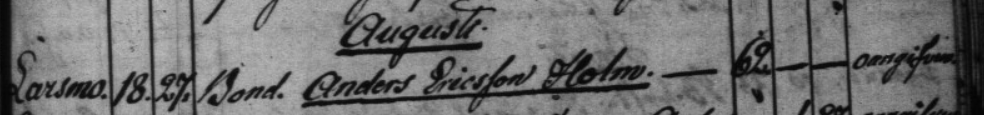 Augusti.
Larsmo. 18. 27. Bond. Anders Ericsson Holm. — 62. — —